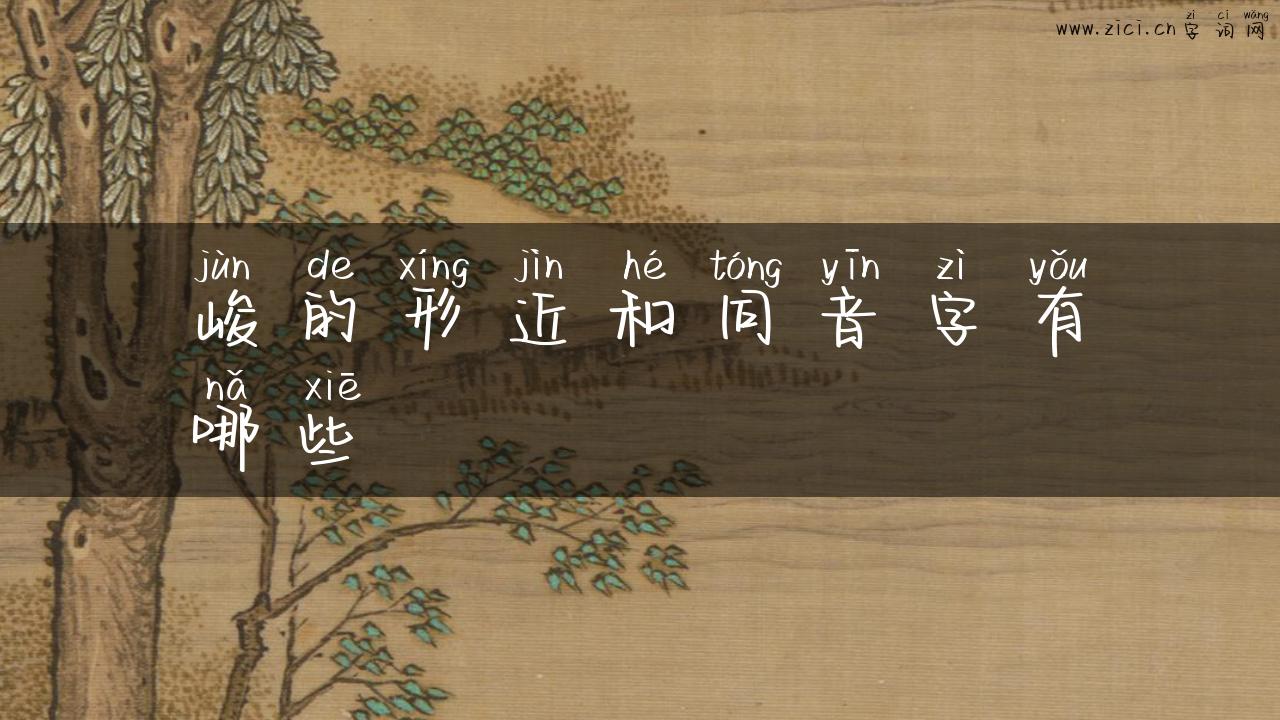 zì cí wǎng
www.zici.cn 字词网
jùn de xíng jìn hé tóng yīn zì yǒu
峻的形近和同音字有
nǎ xiē
哪些